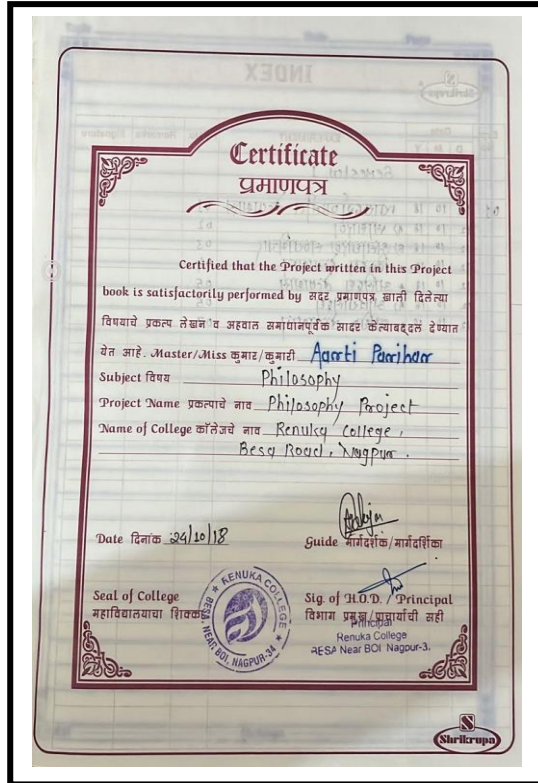 INDEX
Shrikrupa
Certificate
प्रमाणपत्र
Certified that the Project written in this Project
book is satisfactorily performed by सदर प्रमाणपत्र खाली दिलेल्या
विषयाचे प्रकल्प लेखन व अहवाल समाधानपूर्वक सादर केल्याबद्दल देण्यात
येत आहे. Master/Miss कुमार/कुमारी Aarti Parihar
Subject विषय Philosophy
Project Name प्रकल्पाचे नाव Philosophy Project
Name of College कॉलेजचे नाव Renuka College,
Besa Road, Nagpur.
Date दिनांक 24/10/18
Guide मार्गदर्शक/मार्गदर्शिका
Seal of College
महाविद्यालयाचा शिक्का
RENUKA COLLEGE
BESA, NEAR BOI, NAGPUR-34
Sig. of H.O.D. / Principal
विभाग प्रमुख/प्राचार्याची सही
Principal
Renuka College
BESA Near BOI Nagpur-3.
Shrikrupa